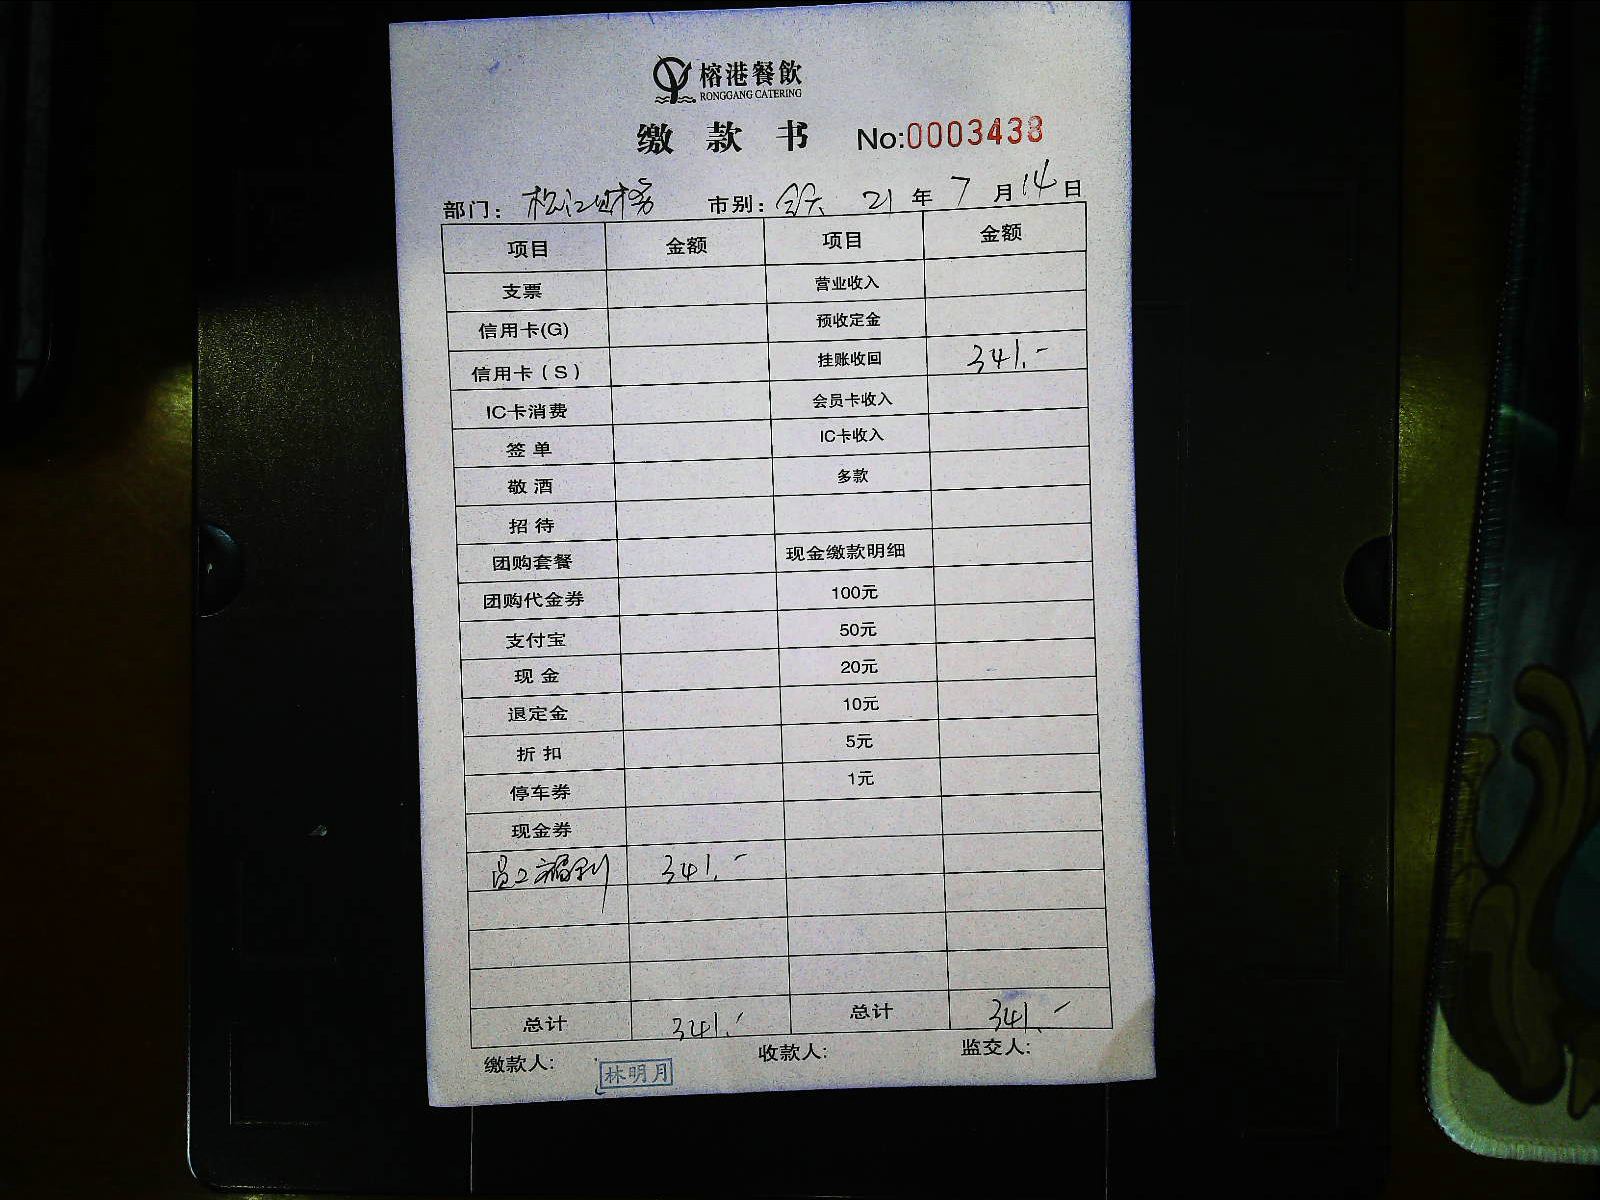 榕港餐飲
RONGGANG CATERING
缴款书 No:0003438
部门: 松江财务 市别: 全天 21 年 7 月 14 日
项目 金额 项目 金额
支票 营业收入
信用卡(G) 预收定金
信用卡(S) 挂账收回 341.-
IC卡消费 会员卡收入
签单 IC卡收入
敬酒 多款
招待
团购套餐 现金缴款明细
团购代金券 100元
支付宝 50元
现金 20元
退定金 10元
折扣 5元
停车券 1元
现金券
员工福利 341.-
总计 341.- 总计 341.-
缴款人: 林明月 收款人: 监交人: